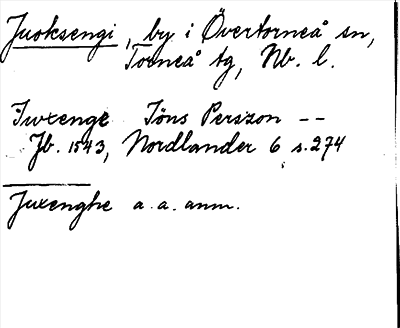 Juoksengi, by i Övertorneå sn,
Torneå tg, Nb. l.
Iwxenge Jöns Perszon --
Jb. 1543, Nordlander 6 s. 274
Juxenghe a. a. anm.